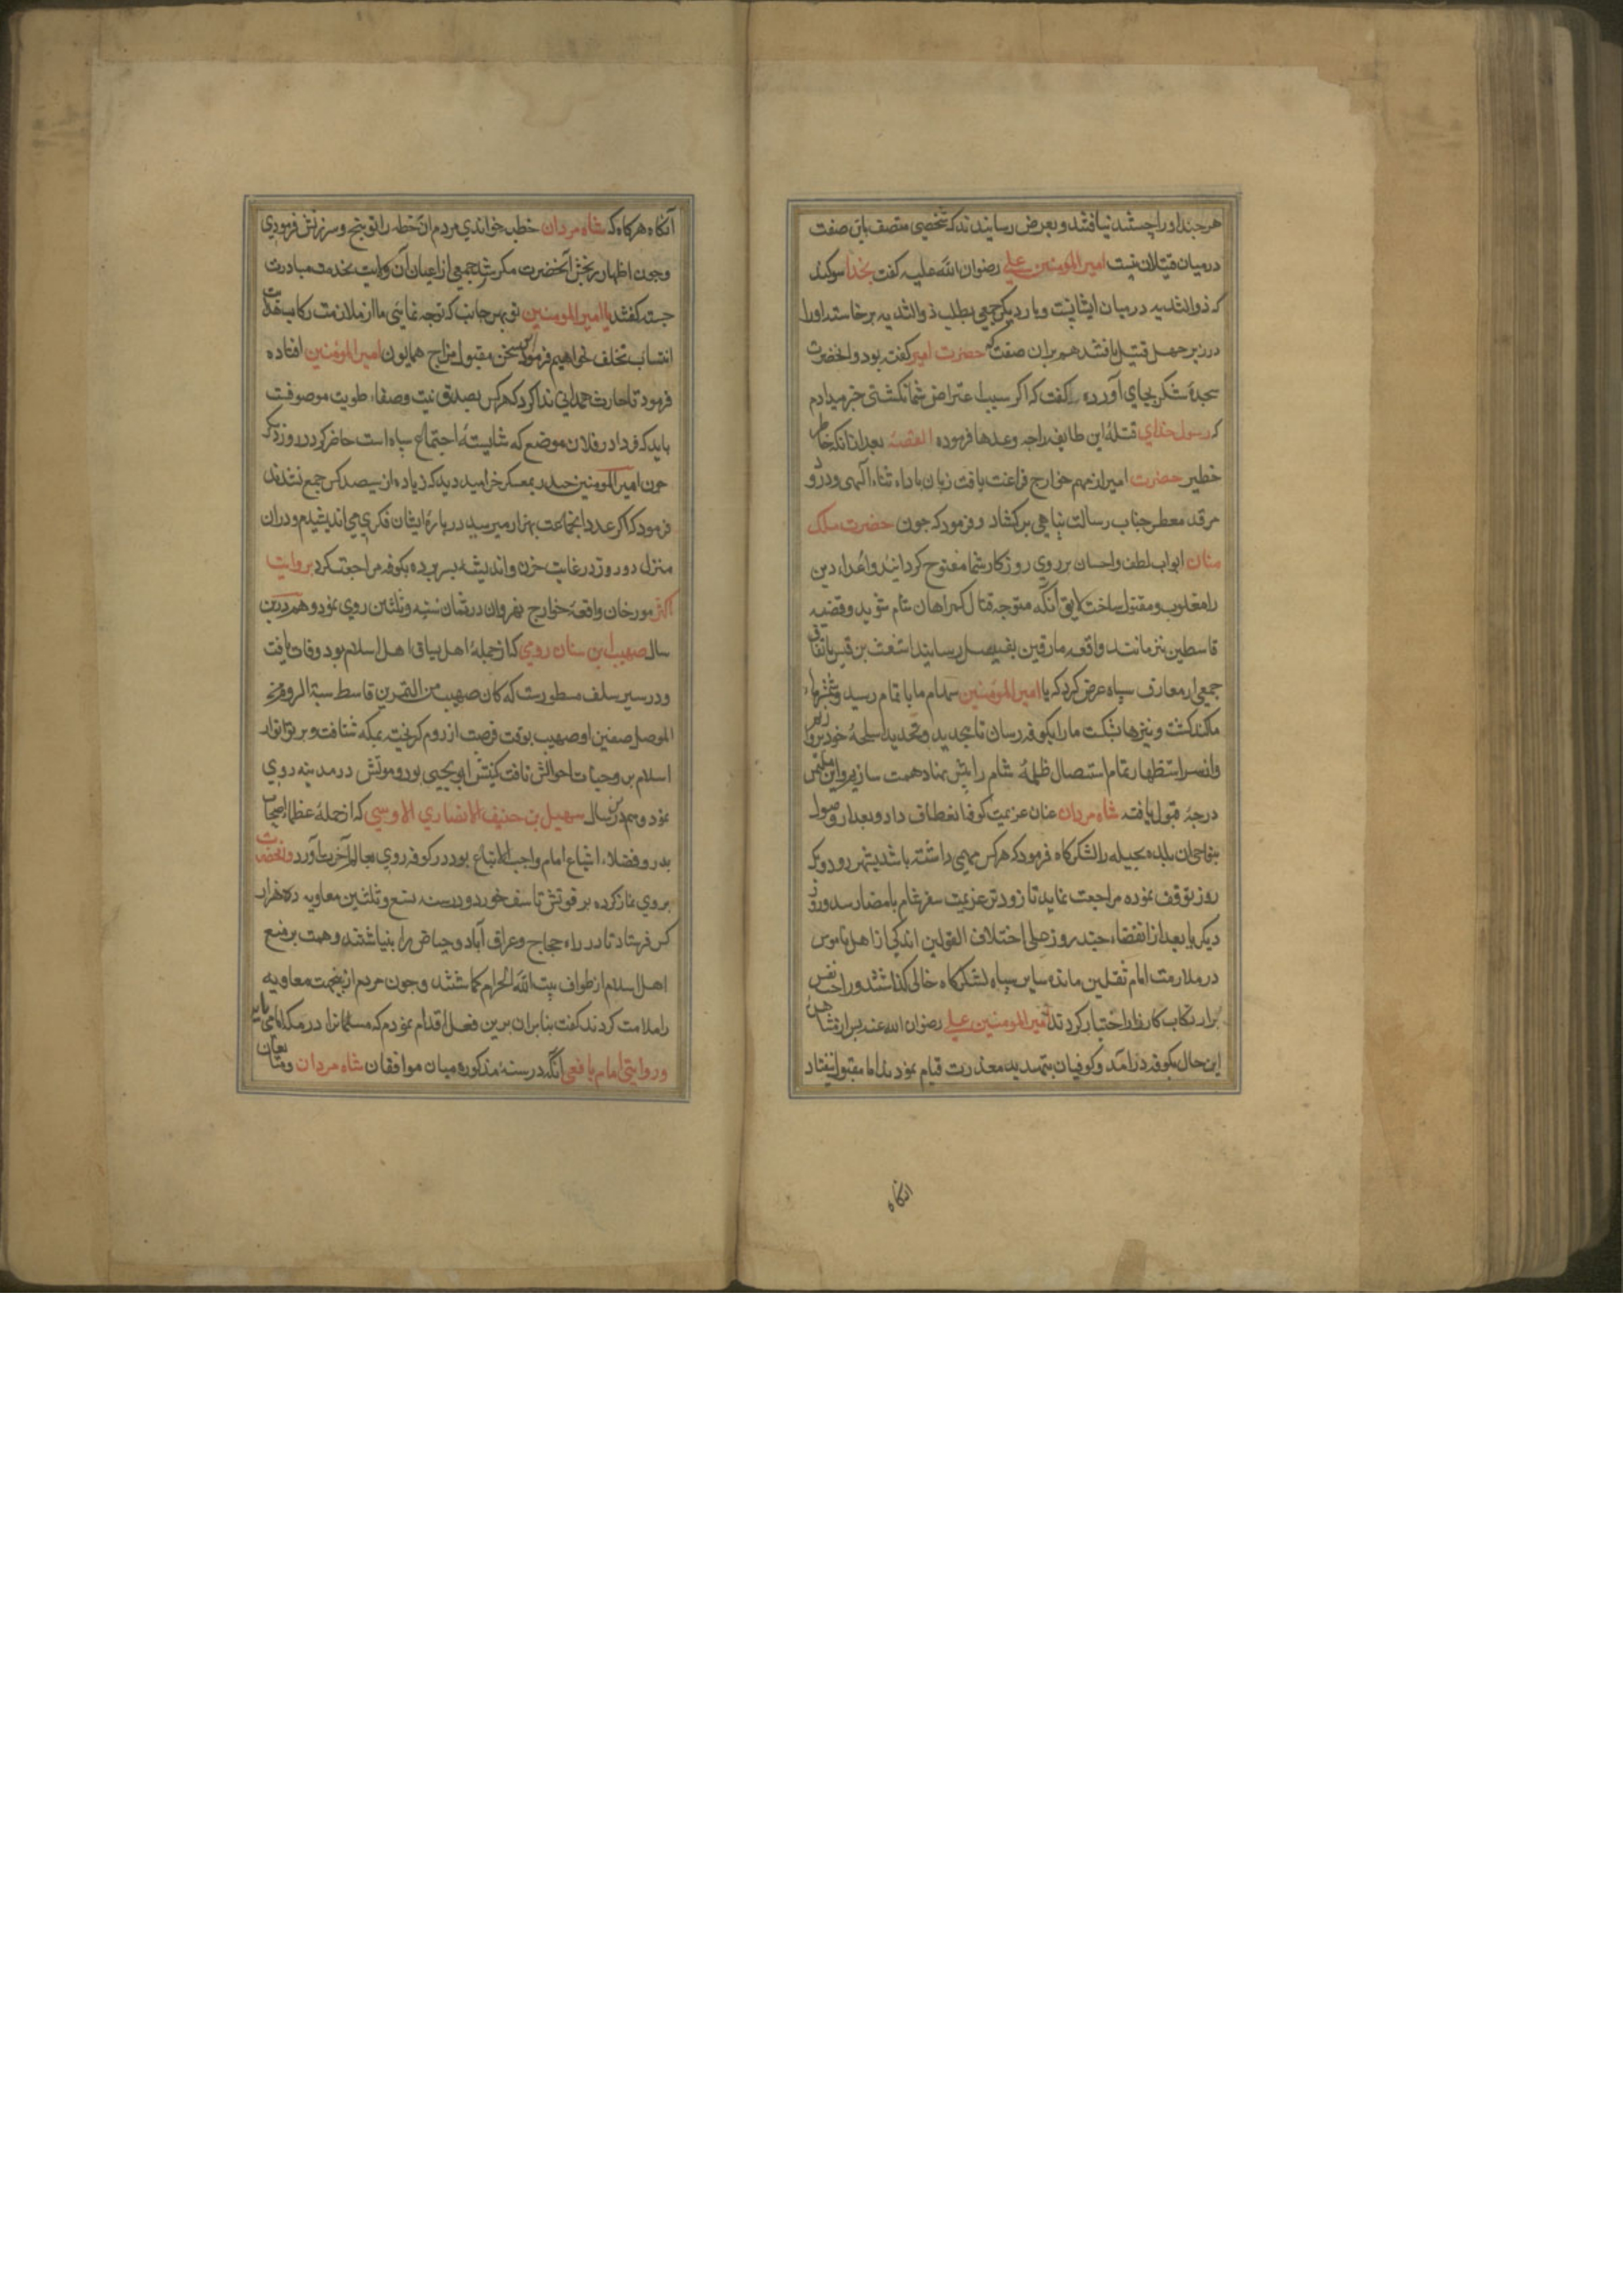 هرچند او را جستند نیافتند و بعرض رسانیدند که شخصی متصف باین صفت
در میان قتیلان نیست امیرالمومنین علی رضوان الله علیه گفت بخدا سوکند
که ذوالثدیه در میان ایشانست و بار دیکر جمعی بطلب ذوالثدیه برخاسته او را
در زیر چهل قتیل یافتند هم بران صفت که حضرت امیر گفته بود و آنحضرت
سجدهٔ شکر بجای آورده گفت که اکر سبب اعتراض شما نکشتی خبر میدادم
که رسول خدای قتلهٔ این طایفه را چه وعدها فرموده القصه بعد ازانکه خاطر
خطیر حضرت امیر از مهم خوارج فراغت یافت زبان باداء ثناء الهی و درود
مرقد معطر جناب رسالت پناهی برکشاد و فرمود که چون حضرت ملک
منان ابواب لطف و احسان بر روی روزکار شما مفتوح کردانید و اعداء دین
را مغلوب و مقتول ساخت لایق آنکه متوجه قتال کمراهان شام شوید و قضیه
قاسطین نیز مانند واقعه مارقین بفیصل رسانید اشعث بن قیس باتفاق
جمعی از معارف سپاه عرض کرد که یا امیرالمومنین سهام ما باتمام رسید و شمشیرها
کند کشت و نیزها شکست ما را بکوفه رسان تا بتجدید و تحدید اسلحهٔ خود پردازیم
و از سر استظهار تمام استیصال ظلمهٔ شام را پیش نهاد همت سازیم و این ملتمس
درجهٔ قبول یافته شاه مردان عنان عزیمت کوفه انعطاف داد و بعد از وصول
بنواحی ان بلده نخیله را لشکرکاه فرمود که هر کس مهمی داشته باشد بشهر رود و یک
روز توقف نموده مراجعت نماید تا زودتر عزیمت سفر شام بامضا رسد و روز
دیکر یا بعد از انقضاء چند روز علی اختلاف القولین اندکی از اهل ناموس
در ملازمت امام ثقلین مانده سایر سپاه لشکرکاه خالی کذاشتند و راحت نفس
بر ارتکاب کارزار اختیار کردند امیرالمومنین علی رضوان الله عنه بس از مشاهدهٔ
این حال بکوفه درآمد و کوفیان بتمهید معذرت قیام نمودند اما مقبول نیفتاد
آنکاه
آنکاه هرکاه که شاه مردان خطبه خواندی مردم ان خطه را توبیخ و سرزنش فرمودی
و چون اظهار رنجش آنحضرت مکرر شد جمعی از اعیان آن ولایت بخدمت مبادرت
جسته کفتند یا امیرالمومنین تو بهر جانب که توجه نمایی ما از ملازمت رکاب
انتساب تخلف نخواهیم فرمود این سخن مقبول مزاج همایون امیرالمومنین افتاده
فرمود تا حارث همدانی ندا کرد که هر کس بصدق نیت و صفاء طویت موصوفست
باید که فردا در فلان موضع که شایستهٔ اجتماع سپاه است حاضر کردد روز دیکر
چون امیرالمومنین حیدر بمعسکر خرامید دید که زیاده از سیصد کس جمع نشدند
فرمود که اکر عدد انجماعت بهزار میرسید در بارهٔ ایشان فکری می‌اندیشیدم و دران
منزل دو روز در غایت حزن و اندیشه بسر برده بکوفه مراجعت کرد بروایت
اکثر مورخان واقعهٔ خوارج نهروان در ثمان و ثلثین روی نمود و هم درین
سال صهیب بن سنان رومی که از جملهٔ اهل اسلام بود وفات یافت
و در سیر سلف مسطورست که کان صهیب من النمر بن قاسط سبته الروم من
الموصل صهیب بوقت فرصت از روم کریخته بمکه شتافت و پرتو انوار
اسلام بر وجنات احوالش تافت کنیتش ابو یحیی بود و موتش در مدینه روی
نمود و هم درین سال سهیل بن حنیف الانصاری الاوسی که از جملهٔ عظماء اصحاب
بدر و فضلاء اتباع امام واجب الاتباع بود در کوفه روی بعالم آخرت آورد و آنحضرت
بروی نماز کرده بر فوتش تاسف خورد و در سنه تسع و ثلثین معاویه ده هزار
کس فرستاد تا در راه حجاج و عراق آباد و حیاض را بنیاشتند و همت بر منع
اهل اسلام از طواف بیت الله الحرام کماشتند و چون مردم ازین جهت معاویه
را ملامت کردند گفت بنابران برین فعل اقدام نمودم که مسلمانرا در مکه
و روایتی امام یافعی آنکه در سنهٔ مذکوره میان موافقان شاه مردان و متابعان